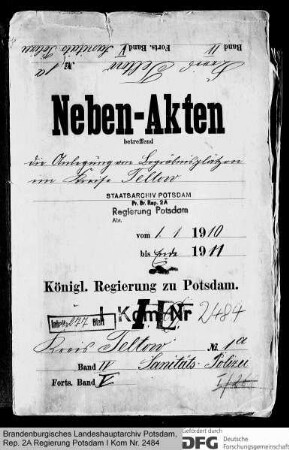 Band IV Forts. Band V Sanitäts Polizei
Kreis Teltow № 1a
Neben-Akten
betreffend
die Anlegung von Begräbnisplätzen
im Kreise Teltow
STAATSARCHIV POTSDAM
Pr. Br. Rep. 2A
Regierung Potsdam
Abt.
vom 1. 1. 1910
bis Ende 1911
Königl. Regierung zu Potsdam.
I Kom Nr 2484
Enthält 277 Blatt
Kreis Teltow № 1a
Band IV Sanitäts-Polizei
Forts. Band V
Brandenburgisches Landeshauptarchiv Potsdam,
Rep. 2A Regierung Potsdam I Kom Nr. 2484
Gefördert durch
DFG Deutsche
Forschungsgemeinschaft